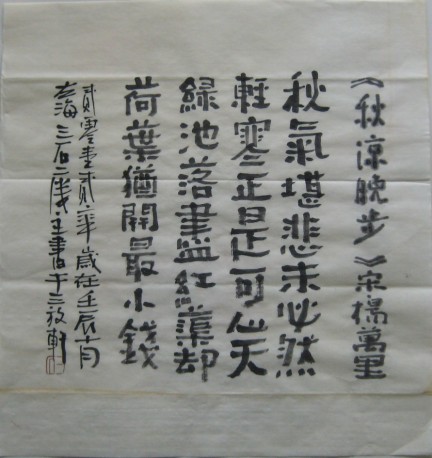 《秋凉晚步》宋楊萬里
秋氣堪悲未必然
輕寒正是可人天
綠池落盡紅蕖却
荷葉猶開最小錢
貳零壹貳年歲在壬辰
左海三石書于三放軒